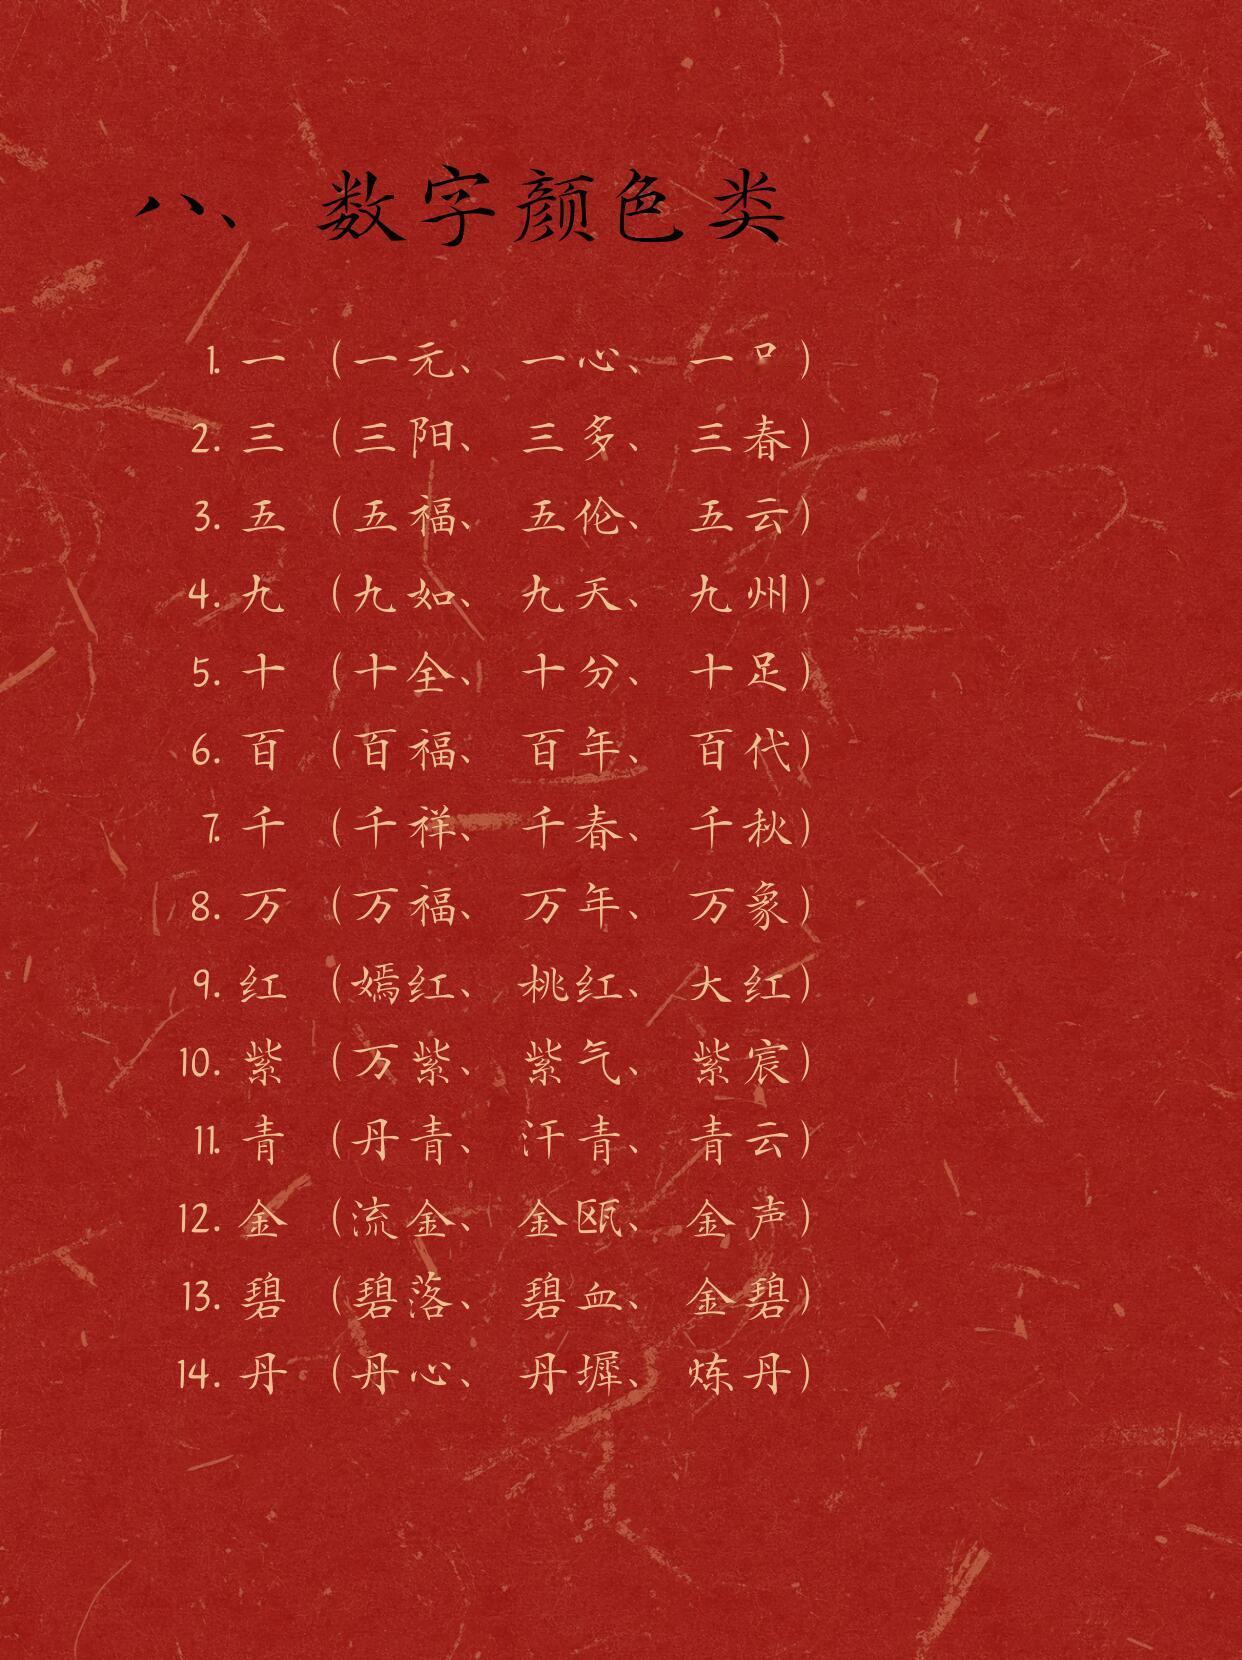 八、 数字颜色类
1. 一 (一元、 一心、 一 )
2. 三 (三阳、 三多、 三春)
3. 五 (五福、 五伦、 五云)
4. 九 (九如、 九天、 九州)
5. 十 (十全、 十分、 十足)
6. 百 (百福、 百年、 百代)
7. 千 (千祥、 千春、 千秋)
8. 万 (万福、 万年、 万象)
9. 红 (嫣红、 桃红、 大红)
10. 紫 (万紫、 紫气、 紫宸)
11. 青 (丹青、 汗青、 青云)
12. 金 (流金、 金瓯、 金声)
13. 碧 (碧落、 碧血、 金碧)
14. 丹 (丹心、 丹墀、 炼丹)